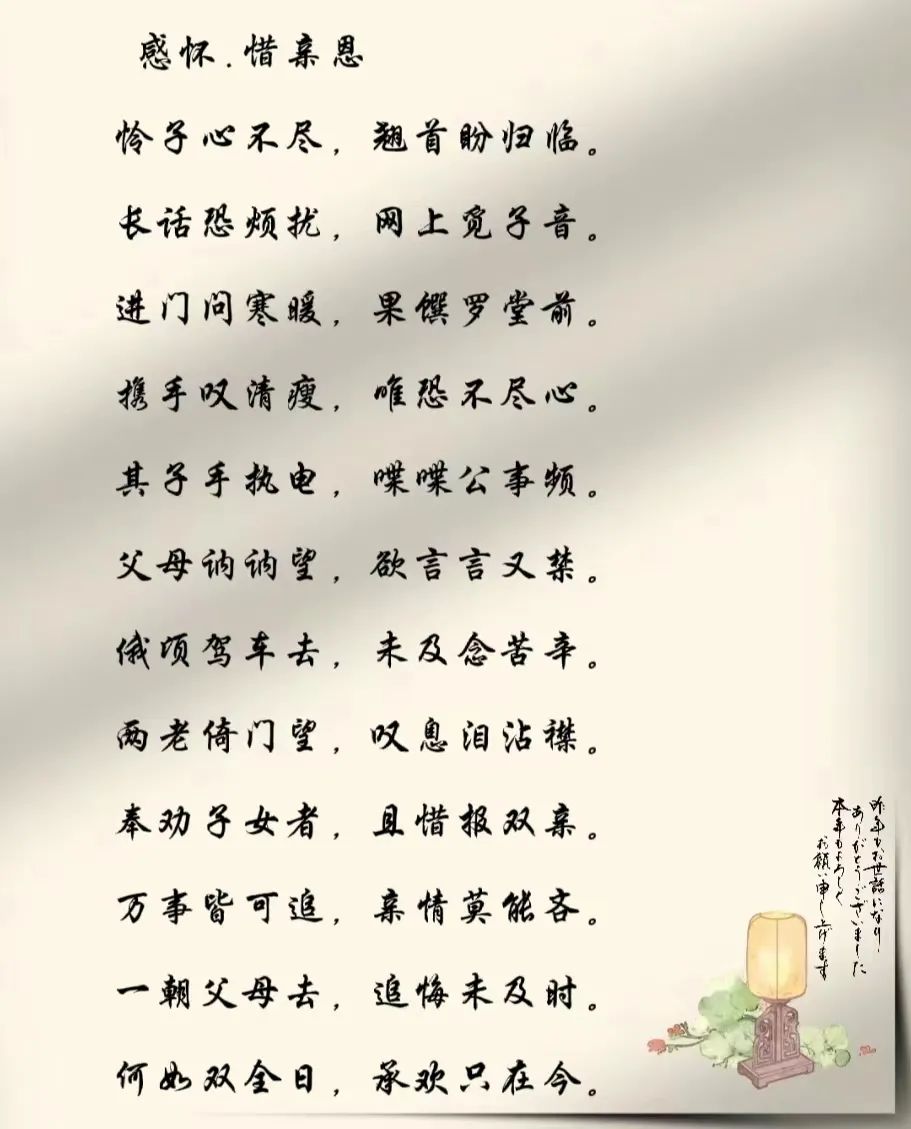 感怀.惜亲恩
怜子心不尽，翘首盼归临。
长话恐烦扰，网上觅子音。
进门问寒暖，果馔罗堂前。
携手叹清瘦，唯恐不尽心。
其子手执电，喋喋公事频。
父母讷讷望，欲言言又禁。
俄顷驾车去，未及念苦辛。
两老倚门望，叹息泪沾襟。
奉劝子女者，且惜报双亲。
万事皆可追，亲情莫能吝。
一朝父母去，追悔未及时。
何如双全日，承欢只在今。
昨年もお世話になり、
ありがとうございました
本年もよろしく
お願い申し上げます